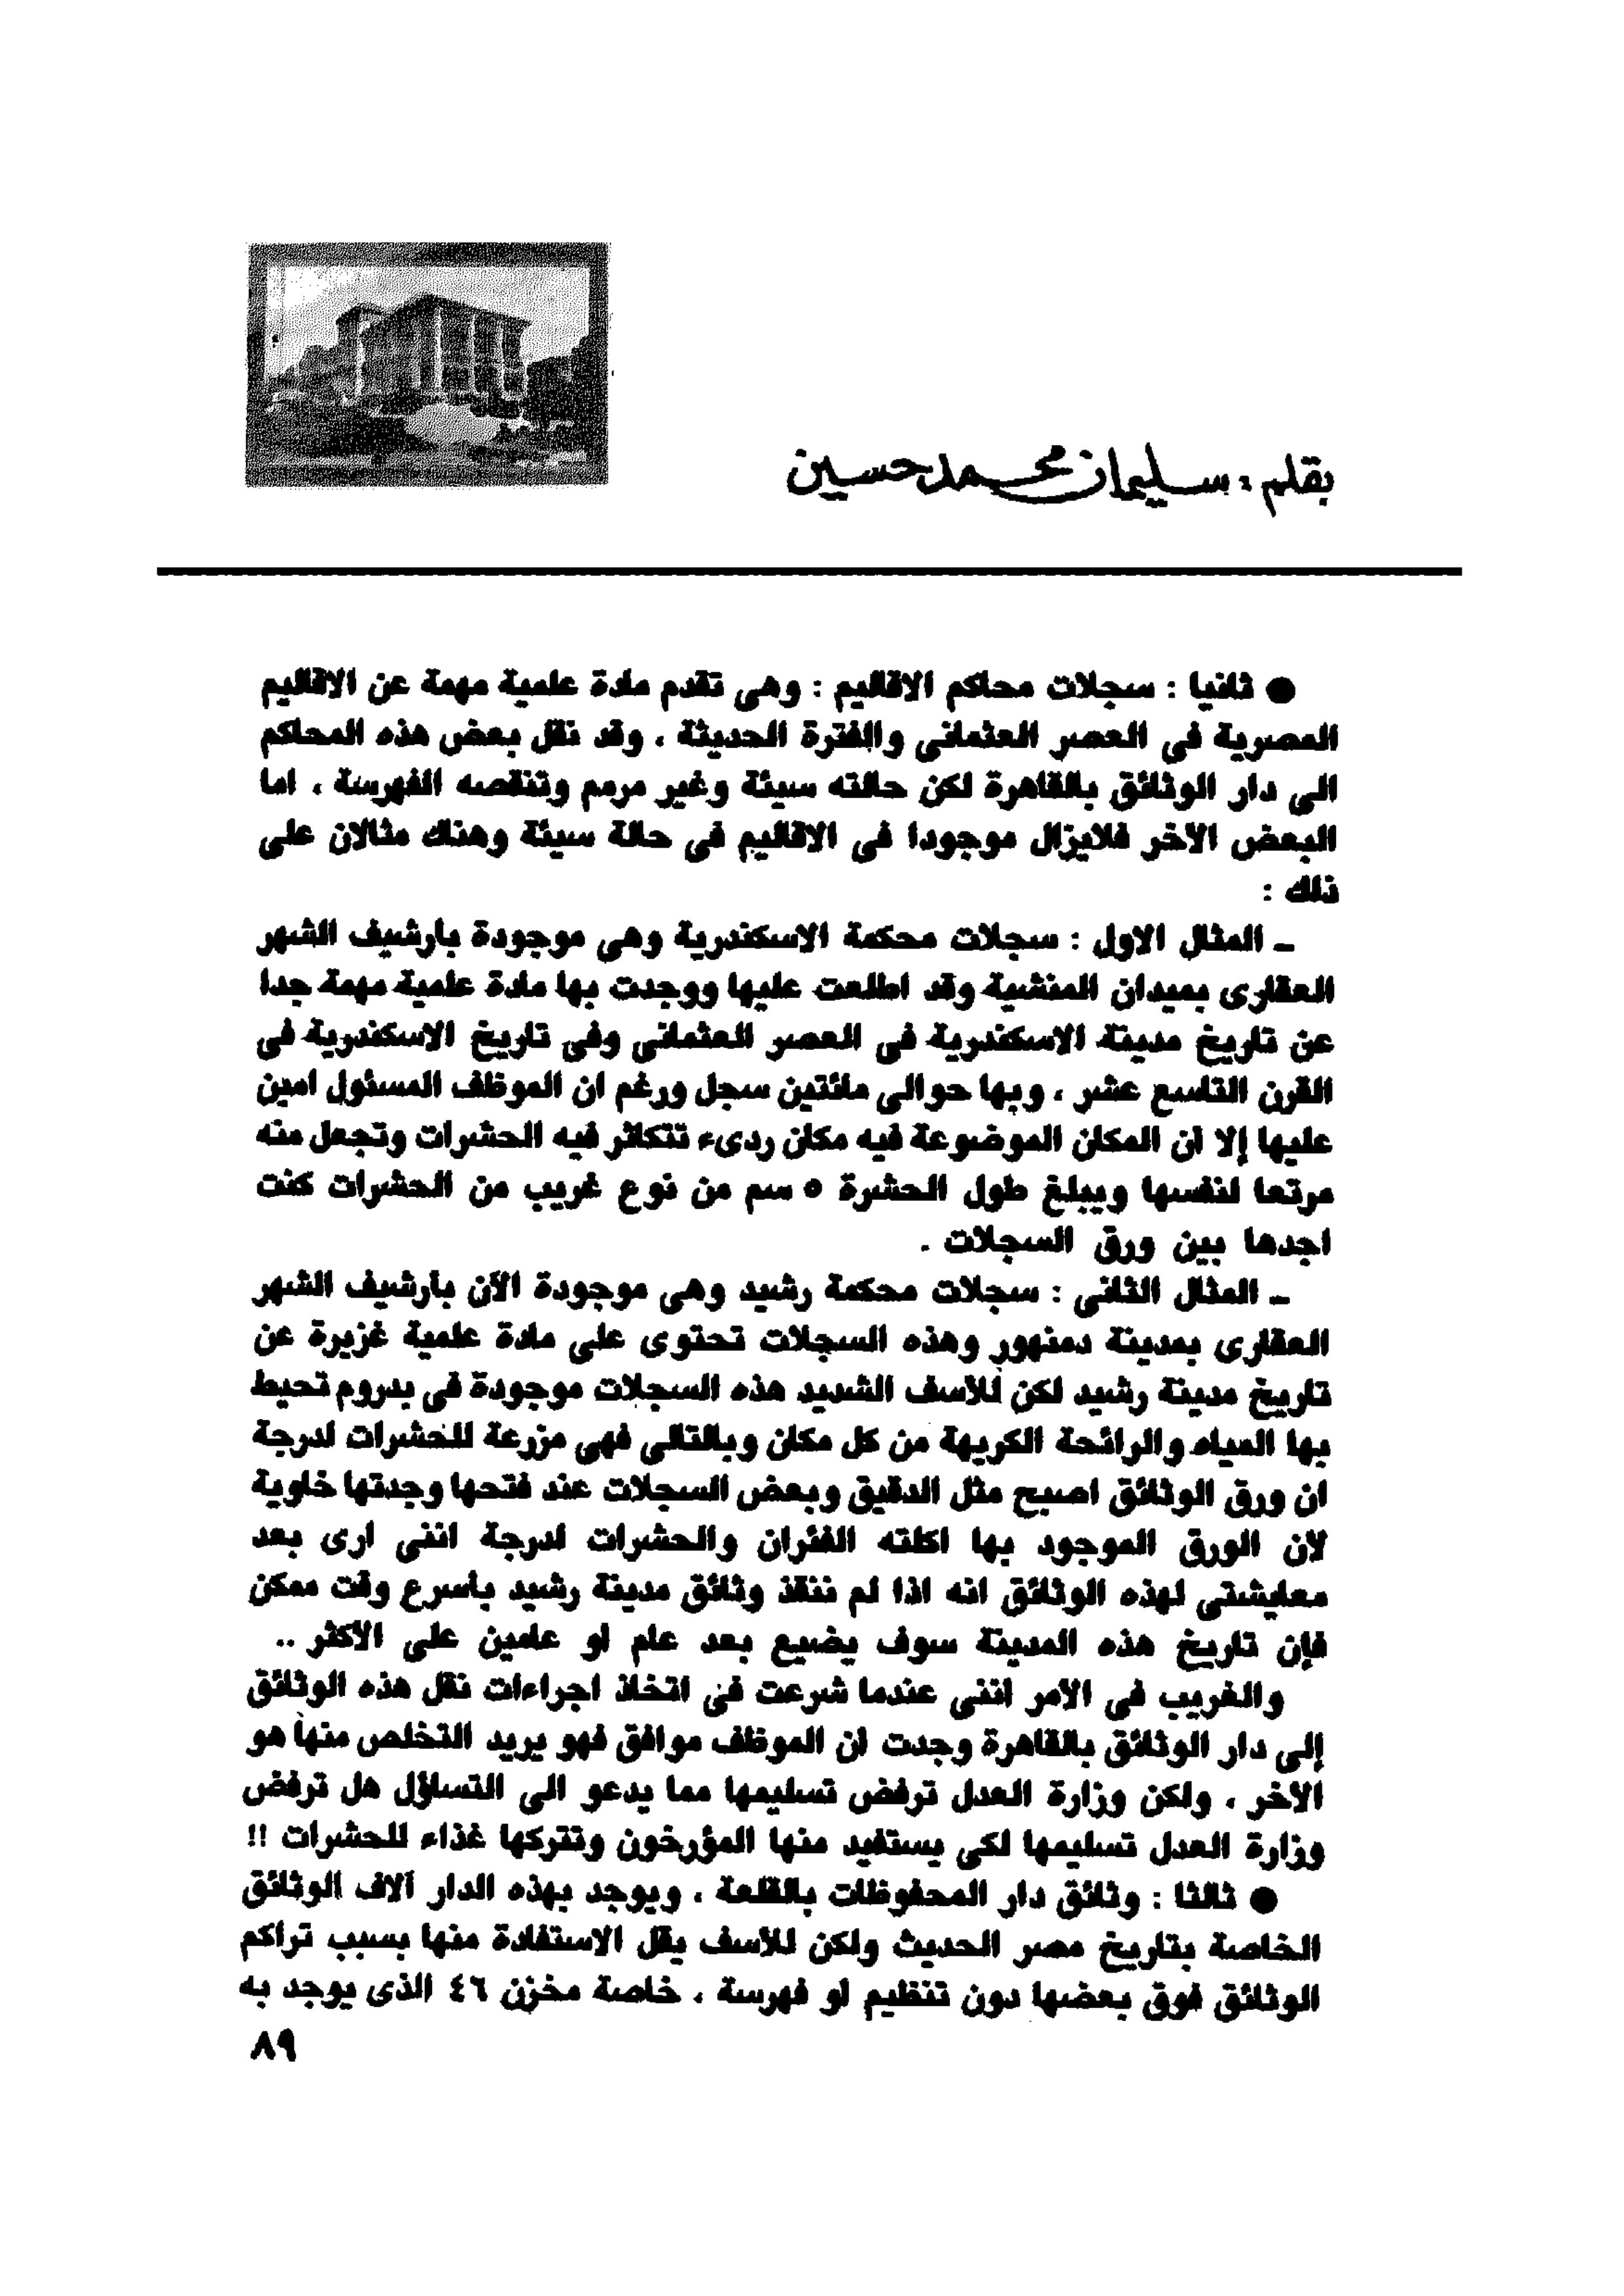 بقلم : سليمان محمد حسين
● ثانيا : سجلات محاكم الاقاليم : وهى تقدم مادة علمية مهمة عن الاقاليم
المصرية فى العصر العثمانى والفترة الحديثة ، وقد نقل بعض هذه المحاكم
الى دار الوثائق بالقاهرة لكن حالته سيئة وغير مرمم وتنقصه الفهرسة ، اما
البعض الآخر فلايزال موجودا فى الاقاليم فى حالة سيئة وهناك مثالان على
ذلك :
ـ المثال الاول : سجلات محكمة الاسكندرية وهى موجودة بارشيف الشهر
العقارى بميدان المنشية وقد اطلعت عليها ووجدت بها مادة علمية مهمة جدا
عن تاريخ مدينة الاسكندرية فى العصر العثمانى وفى تاريخ الاسكندرية فى
القرن التاسع عشر ، وبها حوالى مائتين سجل ورغم ان الموظف المسئول امين
عليها إلا ان المكان الموضوعة فيه مكان ردىء تتكاثر فيه الحشرات وتجعل منه
مرتعا لنفسها ويبلغ طول الحشرة ٥ سم من نوع غريب من الحشرات كنت
اجدها بين ورق السجلات .
ـ المثال الثانى : سجلات محكمة رشيد وهى موجودة الآن بأرشيف الشهر
العقارى بمدينة دمنهور وهذه السجلات تحتوى على مادة علمية غزيرة عن
تاريخ مدينة رشيد لكن للأسف الشديد هذه السجلات موجودة فى بدروم تحيط
بها المياه والرائحة الكريهة من كل مكان وبالتالى فهى مزرعة للحشرات لدرجة
ان ورق الوثائق اصبح مثل الدقيق وبعض السجلات عند فتحها وجدتها خاوية
لان الورق الموجود بها اكلته الفئران والحشرات لدرجة اننى ارى بعد
معايشتى لهذه الوثائق انه اذا لم ننقذ وثائق مدينة رشيد بأسرع وقت ممكن
فإن تاريخ هذه المدينة سوف يضيع بعد عام او عامين على الاكثر ..
والغريب فى الامر اننى عندما شرعت فى اتخاذ اجراءات نقل هذه الوثائق
إلى دار الوثائق بالقاهرة وجدت ان الموظف موافق فهو يريد التخلص منها هو
الآخر ، ولكن وزارة العدل ترفض تسليمها مما يدعو الى التساؤل هل ترفض
وزارة العدل تسليمها لكى يستفيد منها المؤرخون وتتركها غذاء للحشرات !!
● ثالثا : وثائق دار المحفوظات بالقلعة ، ويوجد بهذه الدار آلاف الوثائق
الخاصة بتاريخ مصر الحديث ولكن للأسف يقل الاستفادة منها بسبب تراكم
الوثائق فوق بعضها دون تنظيم او فهرسة ، خاصة مخزن ٤٦ الذى يوجد به
٨٩